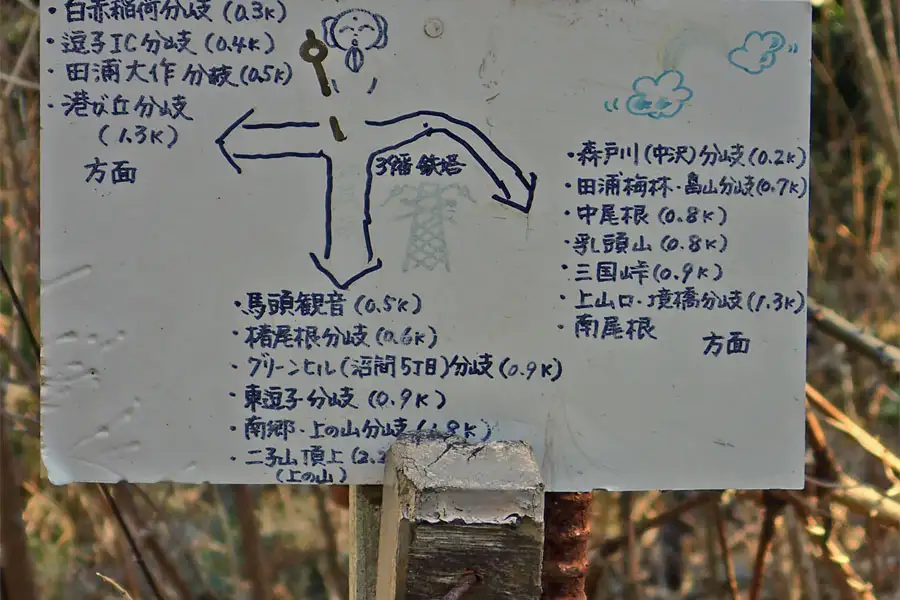 ・白赤稲荷分岐(0.3K)
・逗子IC分岐(0.4K)
・田浦大作分岐(0.5K)
・港が丘分岐
(1.3K)
方面
39番鉄塔
・森戸川(中沢)分岐(0.2K)
・田浦梅林・畠山分岐(0.7K)
・中尾根(0.8K)
・乳頭山(0.8K)
・三国峠(0.9K)
・上山口・境橋分岐(1.3K)
・南尾根
方面
・馬頭観音(0.5K)
・楮尾根分岐(0.6K)
・グリーンヒル(沼間5丁目)分岐(0.9K)
・東逗子分岐(0.9K)
・南郷・上の山分岐(1.8K)
・二子山頂上(2.2
(上の山)